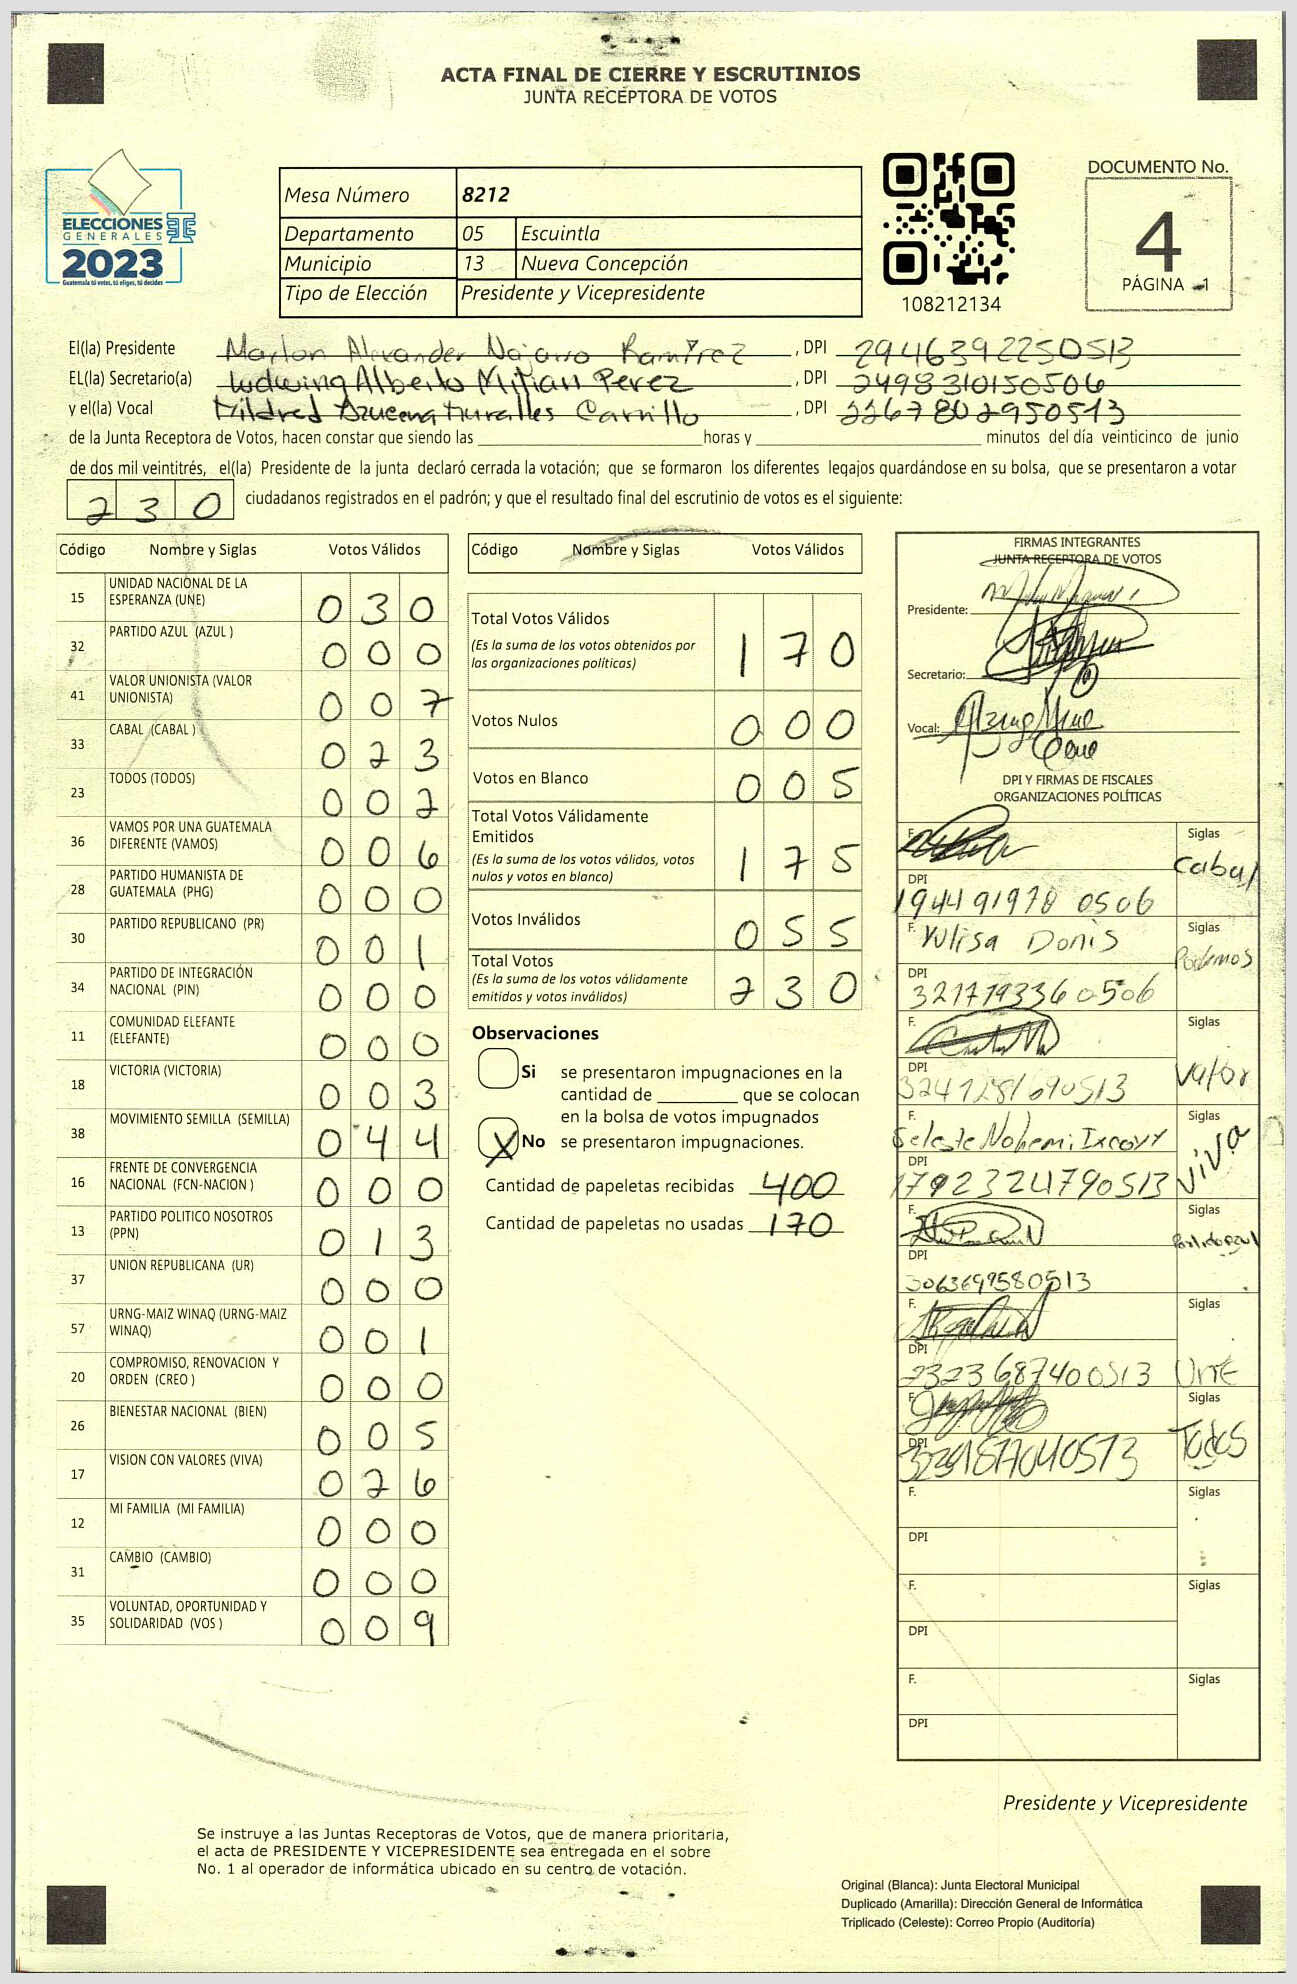 ACTA FINAL DE CIERRE Y ESCRUTINIOS
JUNTA RECEPTORA DE VOTOS
ELECCIONES
GENERALES
2023
Guatemala tú votes, tú eliges, tú decides
Mesa Número 8212
Departamento 05 Escuintla
Municipio 13 Nueva Concepción
Tipo de Elección Presidente y Vicepresidente
108212134
DOCUMENTO No.
4
PÁGINA 1
El(la) Presidente Marlon Alexander Najarro Ramírez , DPI 2946392250513
EL(la) Secretario(a) Ludwing Alberto Mijian Perez , DPI 2498310150506
y el(la) Vocal Mildred Azucena Muralles Carrillo , DPI 2267802950513
de la Junta Receptora de Votos, hacen constar que siendo las horas y minutos del día veinticinco de junio
de dos mil veintitrés, el(la) Presidente de la junta declaró cerrada la votación; que se formaron los diferentes legajos guardándose en su bolsa, que se presentaron a votar
230 ciudadanos registrados en el padrón; y que el resultado final del escrutinio de votos es el siguiente:
Código Nombre y Siglas Votos Válidos
15 UNIDAD NACIONAL DE LA ESPERANZA (UNE) 030
32 PARTIDO AZUL (AZUL ) 000
41 VALOR UNIONISTA (VALOR UNIONISTA) 007
33 CABAL (CABAL ) 023
23 TODOS (TODOS) 002
36 VAMOS POR UNA GUATEMALA DIFERENTE (VAMOS) 006
28 PARTIDO HUMANISTA DE GUATEMALA (PHG) 000
30 PARTIDO REPUBLICANO (PR) 001
34 PARTIDO DE INTEGRACIÓN NACIONAL (PIN) 000
11 COMUNIDAD ELEFANTE (ELEFANTE) 000
18 VICTORIA (VICTORIA) 003
38 MOVIMIENTO SEMILLA (SEMILLA) 044
16 FRENTE DE CONVERGENCIA NACIONAL (FCN-NACION ) 000
13 PARTIDO POLITICO NOSOTROS (PPN) 013
37 UNION REPUBLICANA (UR) 000
57 URNG-MAIZ WINAQ (URNG-MAIZ WINAQ) 001
20 COMPROMISO, RENOVACION Y ORDEN (CREO ) 000
26 BIENESTAR NACIONAL (BIEN) 005
17 VISION CON VALORES (VIVA) 026
12 MI FAMILIA (MI FAMILIA) 000
31 CAMBIO (CAMBIO) 000
35 VOLUNTAD, OPORTUNIDAD Y SOLIDARIDAD (VOS ) 009
Código Nombre y Siglas Votos Válidos
Total Votos Válidos 170
(Es la suma de los votos obtenidos por
las organizaciones políticas)
Votos Nulos 000
Votos en Blanco 005
Total Votos Válidamente
Emitidos 175
(Es la suma de los votos válidos, votos
nulos y votos en blanco)
Votos Inválidos 055
Total Votos 230
(Es la suma de los votos válidamente
emitidos y votos inválidos)
Observaciones
Si se presentaron impugnaciones en la
cantidad de que se colocan
en la bolsa de votos impugnados
X No se presentaron impugnaciones.
Cantidad de papeletas recibidas 400
Cantidad de papeletas no usadas 170
FIRMAS INTEGRANTES
JUNTA RECEPTORA DE VOTOS
Presidente:
Secretario:
Vocal:
DPI Y FIRMAS DE FISCALES
ORGANIZACIONES POLÍTICAS
F. Siglas Cabal
DPI 194491970 0506
F. Yulisa Donis Siglas Podemos
DPI
F. Siglas Valor
DPI 3247281690513
F. Siglas Viva
DPI 1792324790513
F. Siglas Partido azul
DPI 3063699580513
F. Siglas UNE
DPI 2323687400513
F. Siglas Todos
DPI
F. Siglas
DPI
F. Siglas
DPI
F. Siglas
DPI
Presidente y Vicepresidente
Se instruye a las Juntas Receptoras de Votos, que de manera prioritaria,
el acta de PRESIDENTE Y VICEPRESIDENTE sea entregada en el sobre
No. 1 al operador de informática ubicado en su centro de votación.
Original (Blanca): Junta Electoral Municipal
Duplicado (Amarilla): Dirección General de Informática
Triplicado (Celeste): Correo Propio (Auditoría)